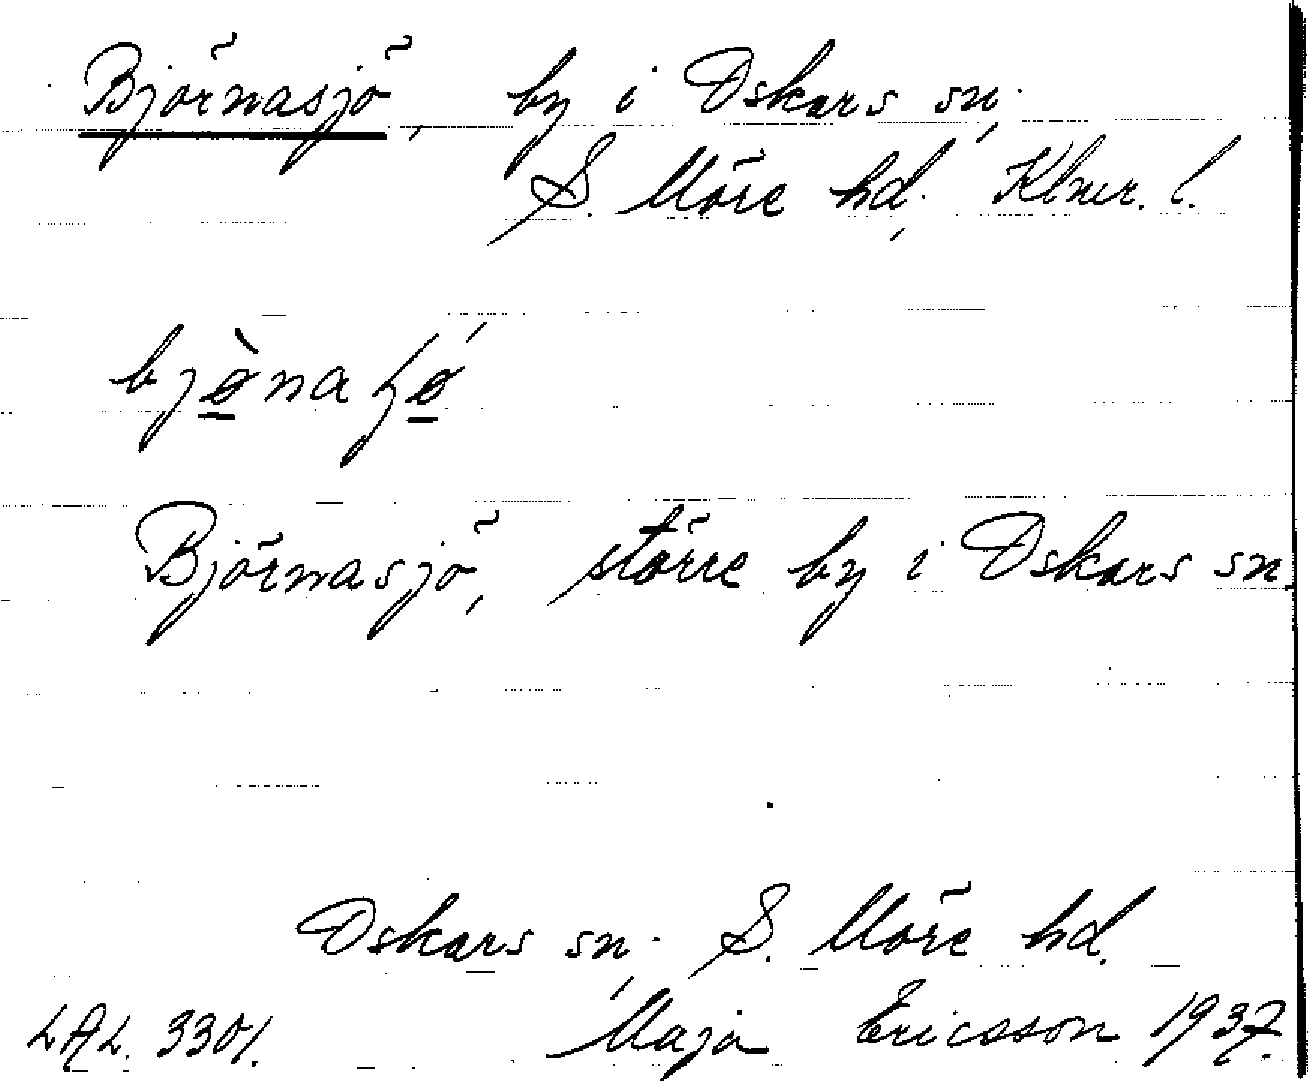 Björnasjö, by i Oskars sn.,
S. Möre hd., Klmr. l.
bjø̠̀naʃǿ̠
Björnasjö, större by i Oskars sn.
Oskars sn., S. Möre hd.
LAL. 3301. Maja Ericsson 1937.